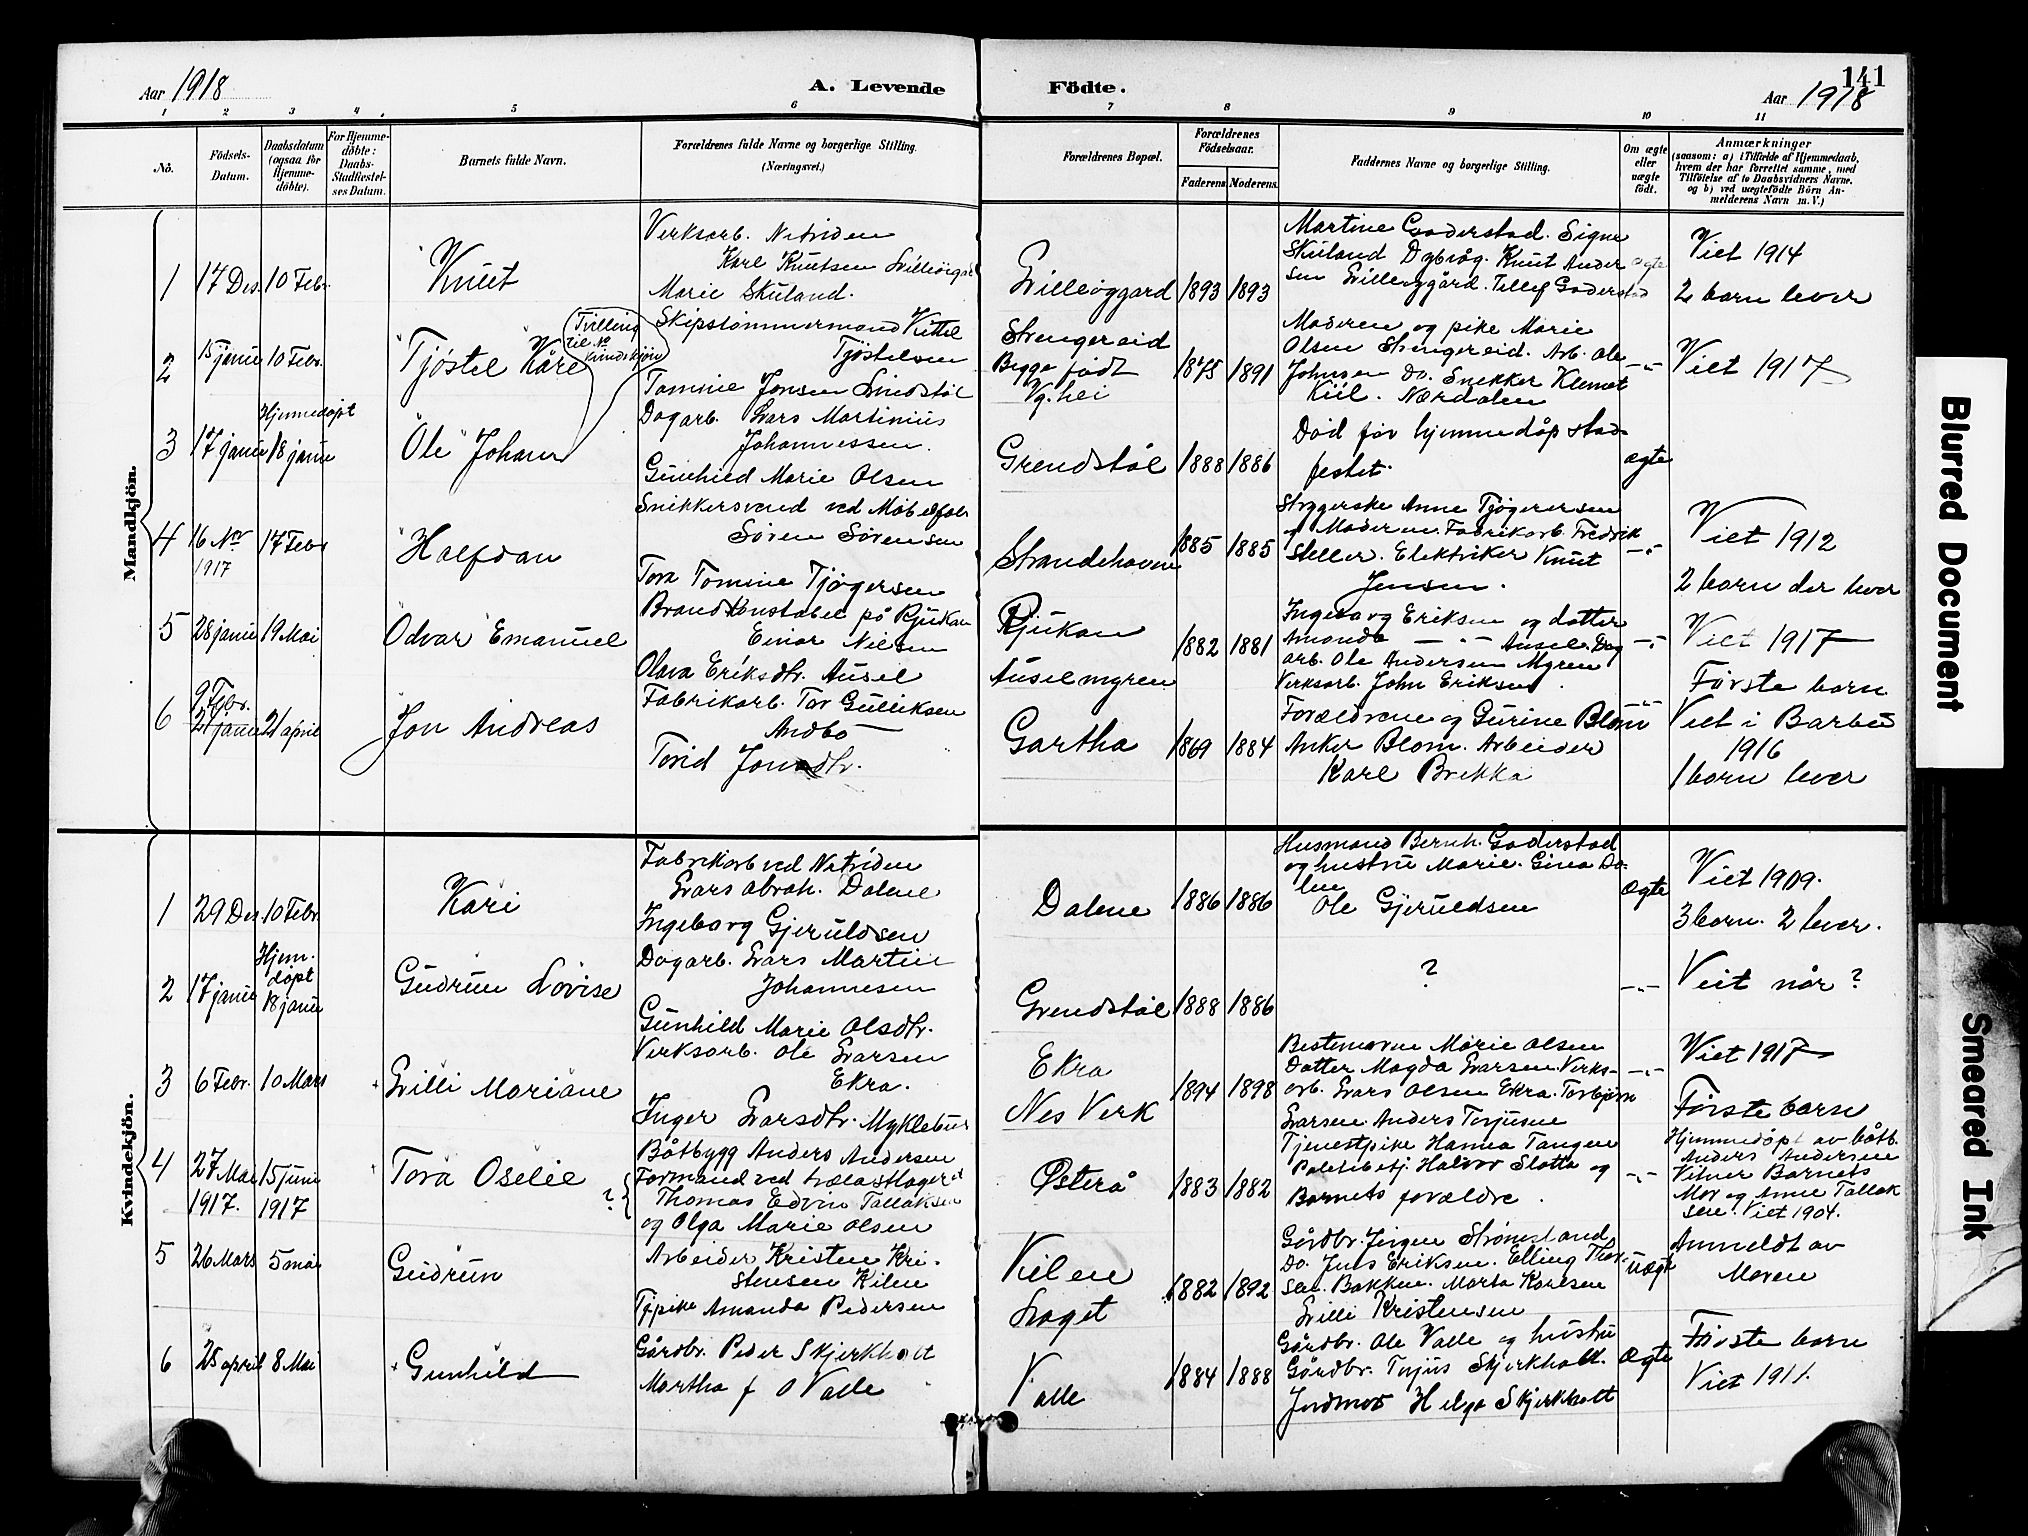 Aar 1918
A. Levende
Födte.
141
Aar 1918
1 2 3 4 5 6 7 8 9 10 11
No.
Födsels-
Datum.
Daabsdatum
(ogsaa for
Hjemme-
døbte).
For Hjemme-
døbte:
Daabs-
Stadfæstel-
ses Datum.
Barnets fulde Navn.
Forældrenes fulde Navne og borgerlige Stilling.
(Næringsvei.)
Forældrenes Bopæl.
Forældrenes
Födselsaar.
Faderens Moderens
Faddernes Navne og borgerlige Stilling.
Om ægte
eller
uægte
født.
Anmærkninger
(saasom: a) i Tilfælde af Hjemmedaab,
hvem der har forrettet samme, med
Tilføielse af to Daabsvidners Navne,
og b) ved uægtefødte Börn An-
melderens Navn m.V.)
Mandkjön.
1 17 Des. 10 Febr. Knut
Verksarb. Nitriden
Karl Knutsen
Marie Skuland.
Lilleøygard 1893 1893
Martine Goderstad. Signe
Skuland Dybvåg. Knut Ander
sen Lilleøygård. Tellef Goderstad
ægte
Viet 1914
2 barn lever
2 15 janu 10 Febr. Tjøstel Kåre
Tvilling
til No
kvindekjøn
Skipstømmermand Kittel
Tjøstelsen
Tomine Jensen Lindstøl
Strengereid
Begge født
Vg.hei
1875 1891
Moderen og pike Marie
Olsen Strengereid. Arb. Ole
Johnsen Do. Snekker Klemet
Kiil. Nærdalen
Viet 1917
3 17 janu Hjemmedøpt
18 janu Ole Johan
Dagarb. Lars Martinius
Johannessen.
Gunhild Marie Olsen
Grendstøl 1888 1886
Død før hjemmedåp stad-
festet.
ægte
4 16 Nov
1917
17 Febr Halfdan
Snikkersvend ved Møbelfab.
Søren Sørensen
Tora Tomine Tjøgersen
Strandehaven 1885 1885
Strygerske Anne Tjøgersen
Moderen. Fabrikarb. Fredrik
Steller. Elektriker Knut
Jensen.
Viet 1912
2 barn der lever
5 28 janu 19 Mai Odvar Emanuel
Brandkonstabel på Rjukan
Einar Nilsen
Olava Eriksdtr. Ausel
Rjukan
Auselmyren
1882 1881
Ingeborg Eriksen og datter
Amanda — " — Ausel. Dag
arb. Ole Andersen Myren
Verksarb. John Eriksen.
Viet 1917
Første barn
6 9 Febr.
21 janu 21 april Jon Andreas
Fabrikarb. Tor Gulliksen
Andbo
Torid Jonsdtr.
Gartha 1869 1884
Forældrene og Gurine Blom
Anker Blom. Arbeider
Karl Brekka
Viet i Barbu
1916
1 barn lever
Kvindekjön.
1 29 Des 10 Febr. Kari
Fabrikarb ved Nitriden
Lars Abrah. Dalene
Ingeborg Gjeruldsen
Dalene 1886 1886
Husmand Bernh. Goderstad
og hustru Marie. Gina Da-
len
Ole Gjeruldsen
Ægte
Viet 1909.
3 barn. 2 lever.
2 17 janu Hjem.
døpt
18 janu Gudrun Lovise
Dagarb. Lars Martin
Johannesen
Gunhild Marie Olsdtr.
Grendstøl 1888 1886
?
Veit når?
3 6 Febr. 10 Mars Lilli Mariane
Verksarb. Ole Larsen
Ekra.
Inger Larsdtr. Myklebus
Ekra
Nes Verk
1894 1898
Bestemoren Marie Olsen
Datter Magda Larsen. Verks-
arb. Lars Olsen Ekra. Torbjørn
Larsen. Anders Torjusen
Viet 1917
Første barn
4 27 Mai
1917.
15 juni
1917
Tora Oselie
?
Båtbygg Anders Andersen
Formand ved trælastlageret
Thomas Edvin Tallaksen
og Olga Marie Olsen
Østerå 1883 1882
Tjenestpike Hanna Tangen
Politibetj. Halvor Slotta og
Barnets forældre.
Hjemmedøpt av båtb.
Anders Andersen
Vitner Barnets
Mor og Anne Tallak
sen. Viet 1904.
5 26 Mars 5 mai Gudrun
Arbeider Kristen Kri-
stensen Kilen
Tj.pike Amanda Pedersen
Kilen
Laget
1882 1892
Gårdbr. Jørgen Strømsland
Do. Jens Eriksen. Elling Thor-
sen. Bakken. Marta Karlsen
Lilli Kristensen
uægte
Anmeldt av
Moren
6 25 april 8 Mai Gunhild
Gårdbr. Peder Skjerkholt
Martha f O Valle
Valle 1884 1888
Gårdbr. Ole Valle og hustru
Gårdbr. Torjus Skjerkholt.
Jordmor Helga Skjerkholt
Ægte
Første barn
Viet 1911.
Blurred Document
Smeared Ink